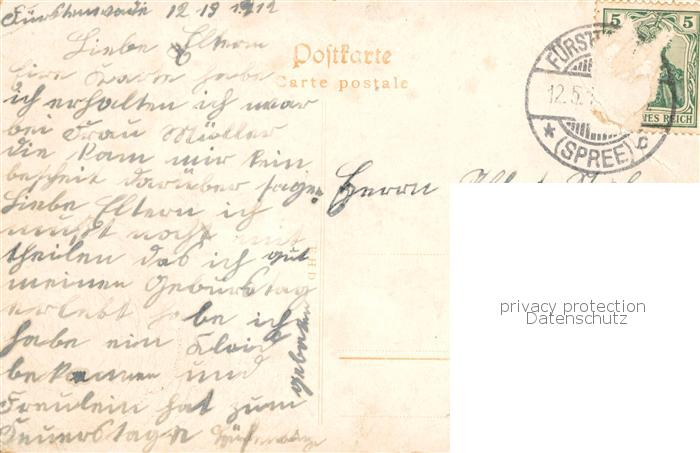 Fürstenwade 12 13 1912
Liebe Eltern
Eine Karte habe
ich erhalten ich war
bei Frau Müller
die kam mir kein
bescheit darüber sagen
Liebe Eltern ich
noch mit
theilen das ich gut
meinen Geburstag
erlebt habe ich
habe ein Kleid
bekammen und
Freulein hat zum
Geburstag
gebaken
Postkarte
Carte postale
Herrn
FÜRST
12.5.1
(SPREE)
5 5
ES REICH
privacy protection
Datenschutz